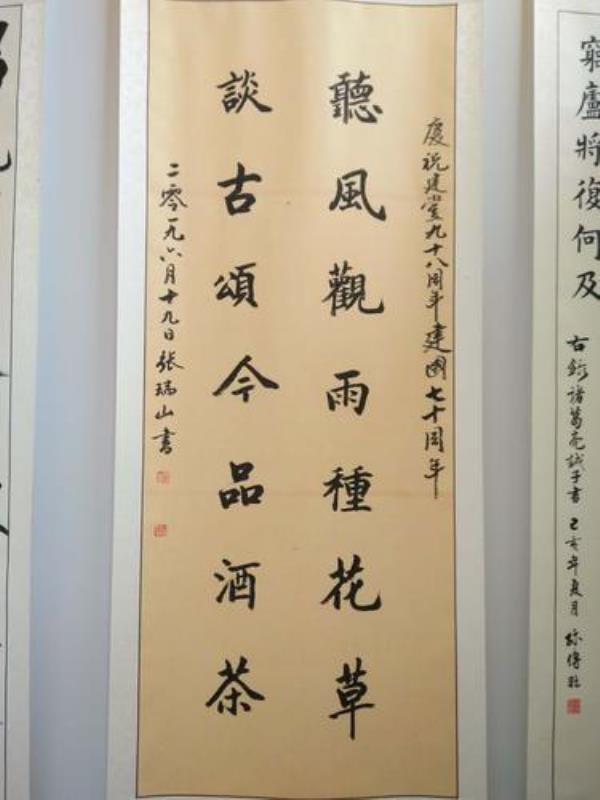 窮廬將復何及
右錄諸葛亮誡子書 己亥年夏月
慶祝建堂九十八周年建國七十周年
聽風觀雨種花草
談古頌今品酒茶
二零一九六月十九日张瑞山書